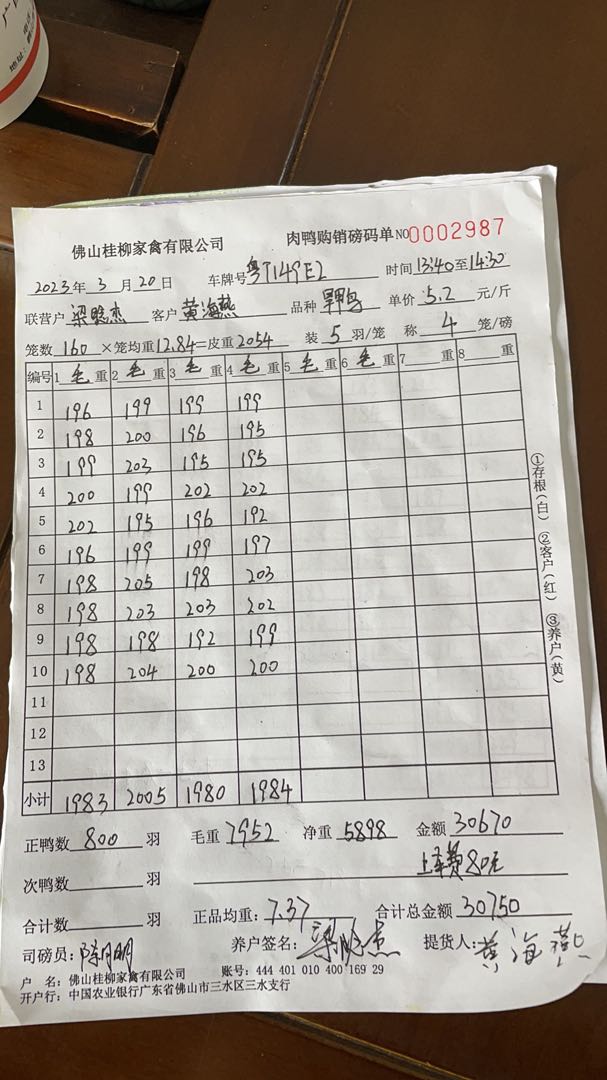 佛山桂柳家禽有限公司 肉鸭购销磅码单 NO 0002987
2023年 3 月 20 日 车牌号 粤T149E2 时间 13:40至14:30
联营户 梁晓杰 客户 黄海燕 品种 单价 5.2 元/斤
笼数 160 ×笼均重 12.84 =皮重 2054 装 5 羽/笼 称 4 笼/磅
编号 1 毛 重 2 毛 重 3 毛 重 4 毛 重 5 毛 重 6 毛 重 7 重 8 重
1 196 199 199 199
2 198 200 196 195
3 199 203 195 195
4 200 199 202 202
5 202 195 196 192
6 196 199 199 197
7 198 205 198 203
8 198 203 203 202
9 198 198 192 199
10 198 204 200 200
11
12
13
小计 1983 2005 1980 1984
①存根(白) ②客户(红) ③养户(黄)
正鸭数 800 羽 毛重 7952 净重 5898 金额 30670
次鸭数 羽 上车费80元
合计数 羽 正品均重: 7.37 合计总金额 30750
司磅员: 陈月明 养户签名: 梁晓杰 提货人: 黄海燕
户 名: 佛山桂柳家禽有限公司 账号: 444 401 010 400 169 29
开户行: 中国农业银行广东省佛山市三水区三水支行